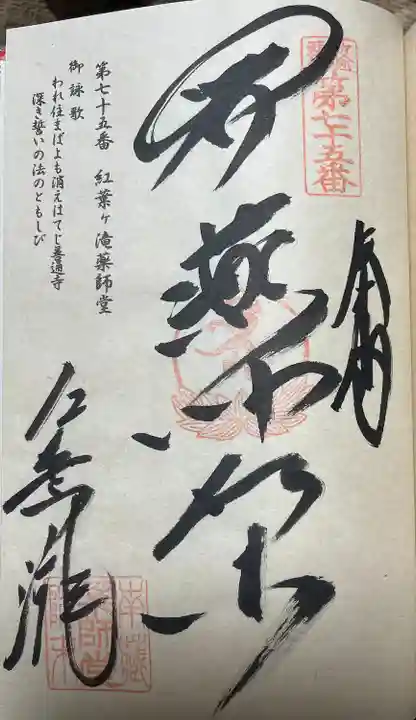 第七十五番
奉納
薬師如来
第七十五番　紅葉ヶ滝薬師堂
御詠歌
われ住まばよも消えはてじ善通寺
深き誓いの法のともしび
紅葉滝